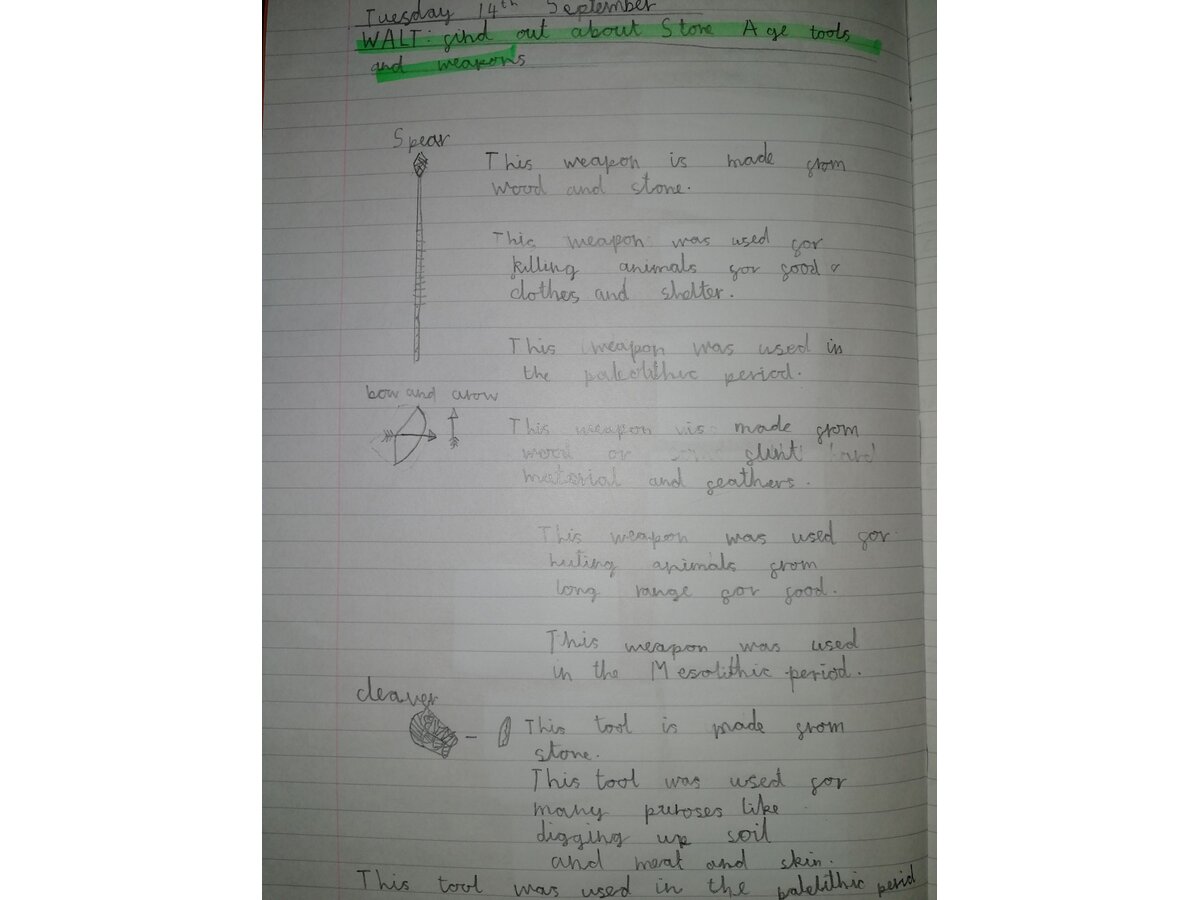 Tuesday 14th September
WALT: find out about Stone Age tools
and weapons
Spear
This weapon is made from
wood and stone.
This weapon was used for
killing animals for food
clothes and shelter.
This weapon was used in
the paleolithic period.
bow and arow
This weapon is made from
wood or flint
material and feathers.
This weapon was used for
huting animals from
long range for food.
This weapon was used
in the Mesolithic period.
cleaver
This tool is made from
stone.
This tool was used for
many puroses like
digging up soil
and meat and skin.
This tool was used in the palelithic period